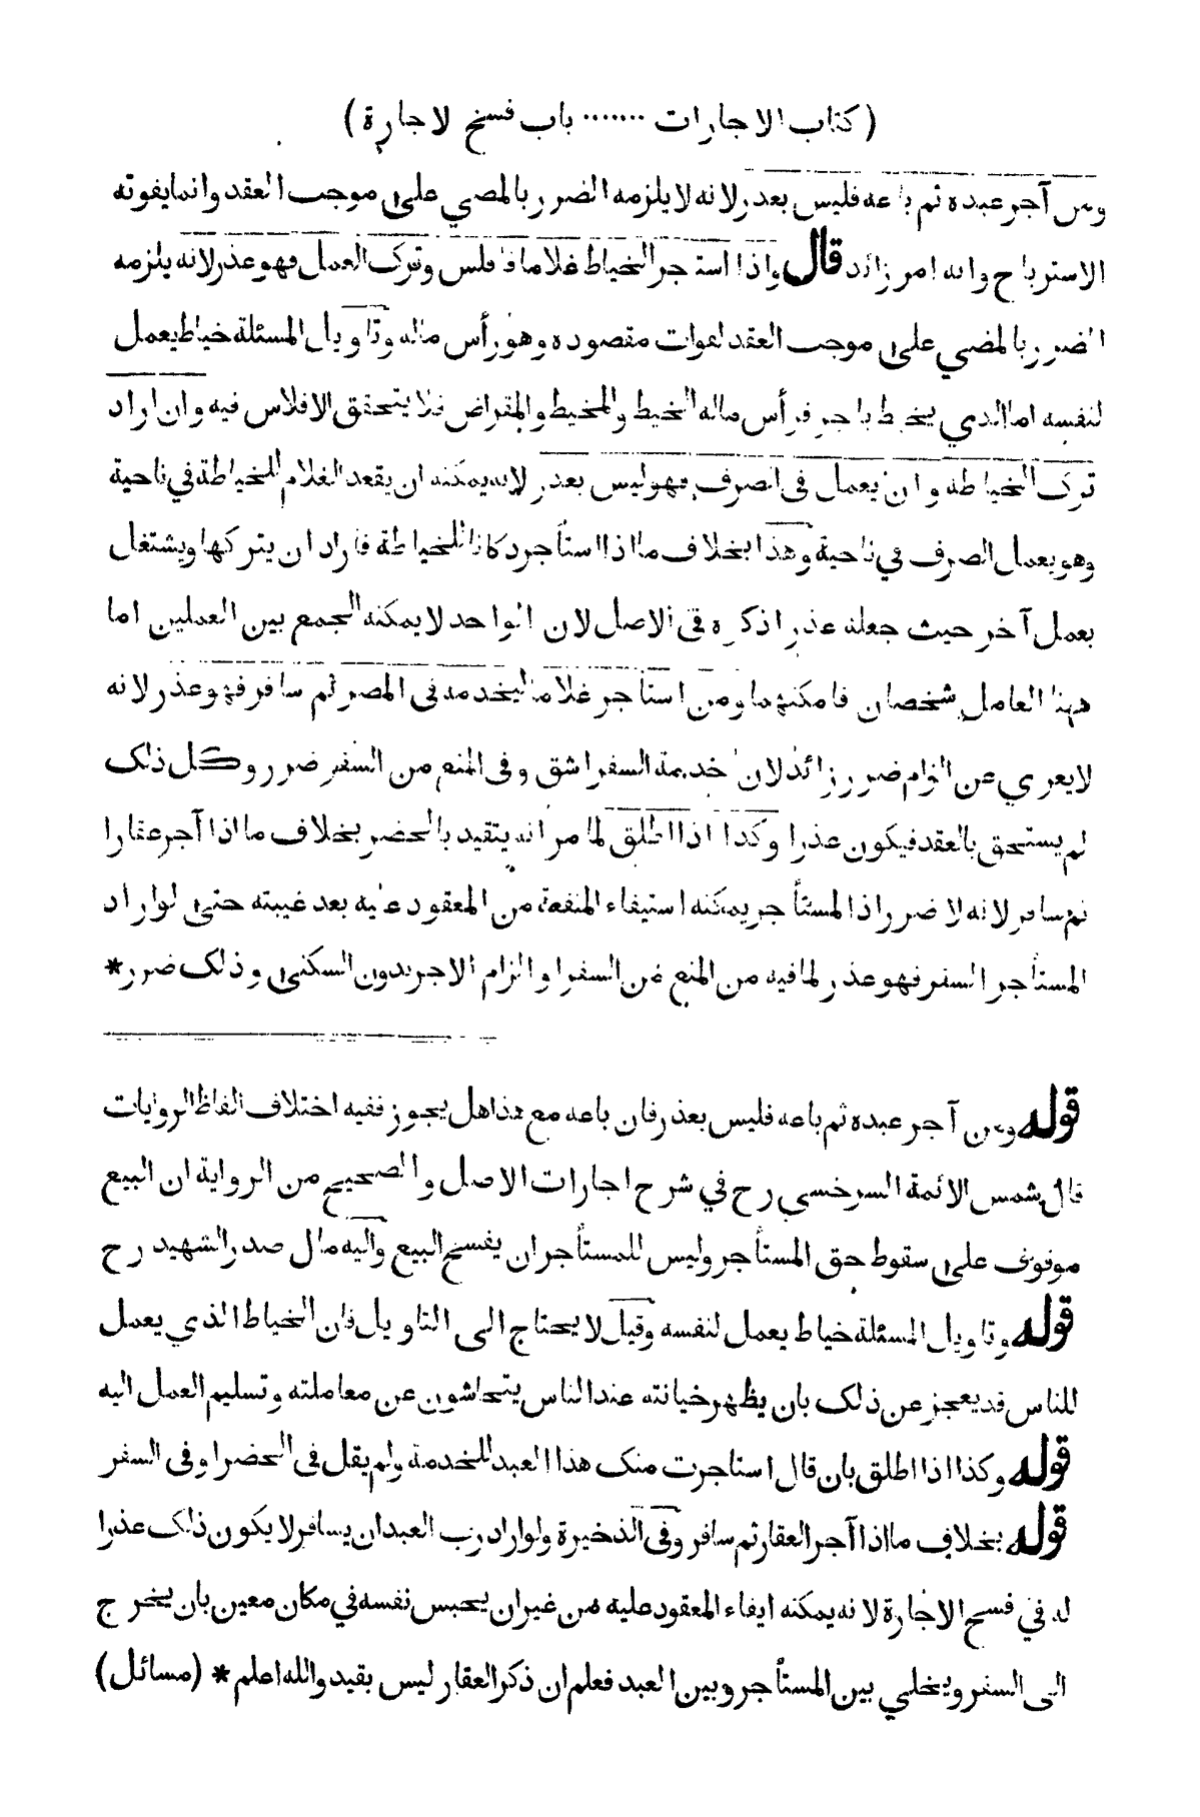 (كتاب الاجارات ······· باب فسخ الاجارة)
ومن آجر عبده ثم باعه فليس بعذر لانه لا يلزمه الضرر بالمضي على موجب العقد وانما يفوته
الاسترباح وانه امر زائد قال واذا استاجر الخياط غلاما فافلس وترك العمل فهو عذر لانه يلزمه
الضرر بالمضي على موجب العقد لفوات مقصوده وهو رأس ماله وتاويل المسئلة خياط يعمل
لنفسه اما الذي يخيط باجر فرأس ماله الخيط والمخيط والمقراض فلا يتحقق الافلاس فيه وان اراد
ترك الخياطة وان يعمل في الصرف فهو ليس بعذر لانه يمكنه ان يقعد الغلام للخياطة في ناحية
وهو يعمل الصرف في ناحية وهذا بخلاف ما اذا استأجر دكانا للخياطة فاراد ان يتركها ويشتغل
بعمل آخر حيث جعله عذرا ذكره في الاصل لان الواحد لا يمكنه الجمع بين العملين اما
ههنا العامل شخصان فامكنهما ومن استأجر غلاما ليخدمه في المصر ثم سافر فهو عذر لانه
لا يعرى عن الزام ضرر زائد لان خدمة السفر اشق وفي المنع من السفر ضرر وكل ذلك
لم يستحق بالعقد فيكون عذرا وكذا اذا اطلق لما مر انه يتقيد بالحضر بخلاف ما اذا آجر عقارا
ثم سافر لانه لا ضرر اذ المستأجر يمكنه استيفاء المنفعة من المعقود عليه بعد غيبته حتى لو اراد
المستأجر السفر فهو عذر لما فيه من المنع من السفر او الزام الاجر بدون السكنى وذلك ضرر*
قوله ومن آجر عبده ثم باعه فليس بعذر فان باعه مع هذا هل يجوز ففيه اختلاف الفاظ الروايات
قال شمس الائمة السرخسي رح في شرح اجارات الاصل والصحيح من الرواية ان البيع
موقوف على سقوط حق المستأجر وليس للمستأجر ان يفسخ البيع واليه مال صدر الشهيد رح
قوله وتاويل المسئلة خياط يعمل لنفسه وقيل لا يحتاج الى التاويل فان الخياط الذي يعمل
للناس قد يعجز عن ذلك بان يظهر خيانته عند الناس يتحاشون عن معاملته وتسليم العمل اليه
قوله وكذا اذا اطلق بان قال استاجرت منك هذا العبد للخدمة ولم يقل في الحضر او في السفر
قوله بخلاف ما اذا آجر العقار ثم سافر وفي الذخيرة ولو اراد رب العبد ان يسافر لا يكون ذلك عذرا
له في فسخ الاجارة لانه يمكنه ايفاء المعقود عليه من غير ان يحبس نفسه في مكان معين بان يخرج
الى السفر ويخلي بين المستأجر وبين العبد فعلم ان ذكر العقار ليس بقيد والله اعلم * (مسائل)